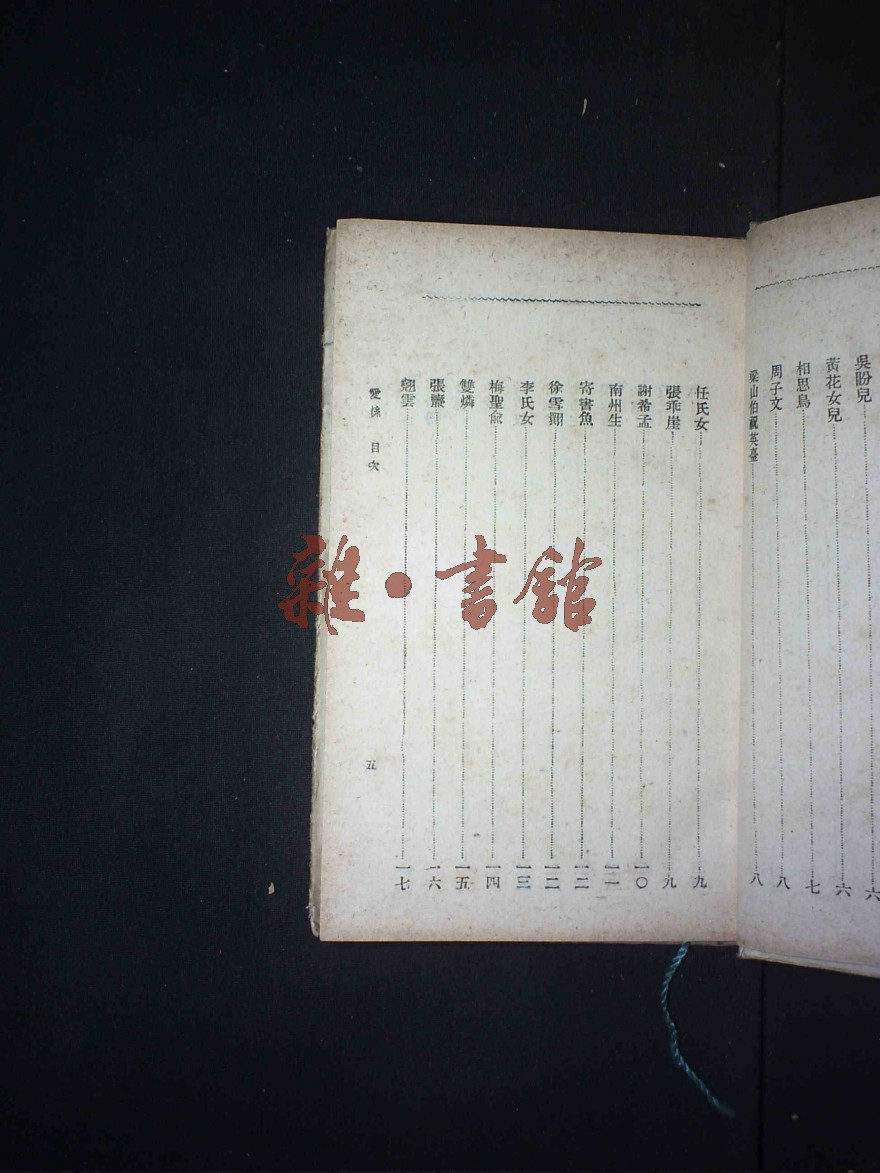 吳盼兒………六
黃花女兒………六
相思鳥………七
周子文………八
梁山伯祝英臺………八
任氏女………九
張乖崖………九
謝希孟………一〇
南州生………一一
寄書魚………一二
徐雪卿………一二
李氏女………一三
梅聖俞………一四
雙燐………一五
張………一六
翅雲………一七
愛條 目次
五
雜·書館